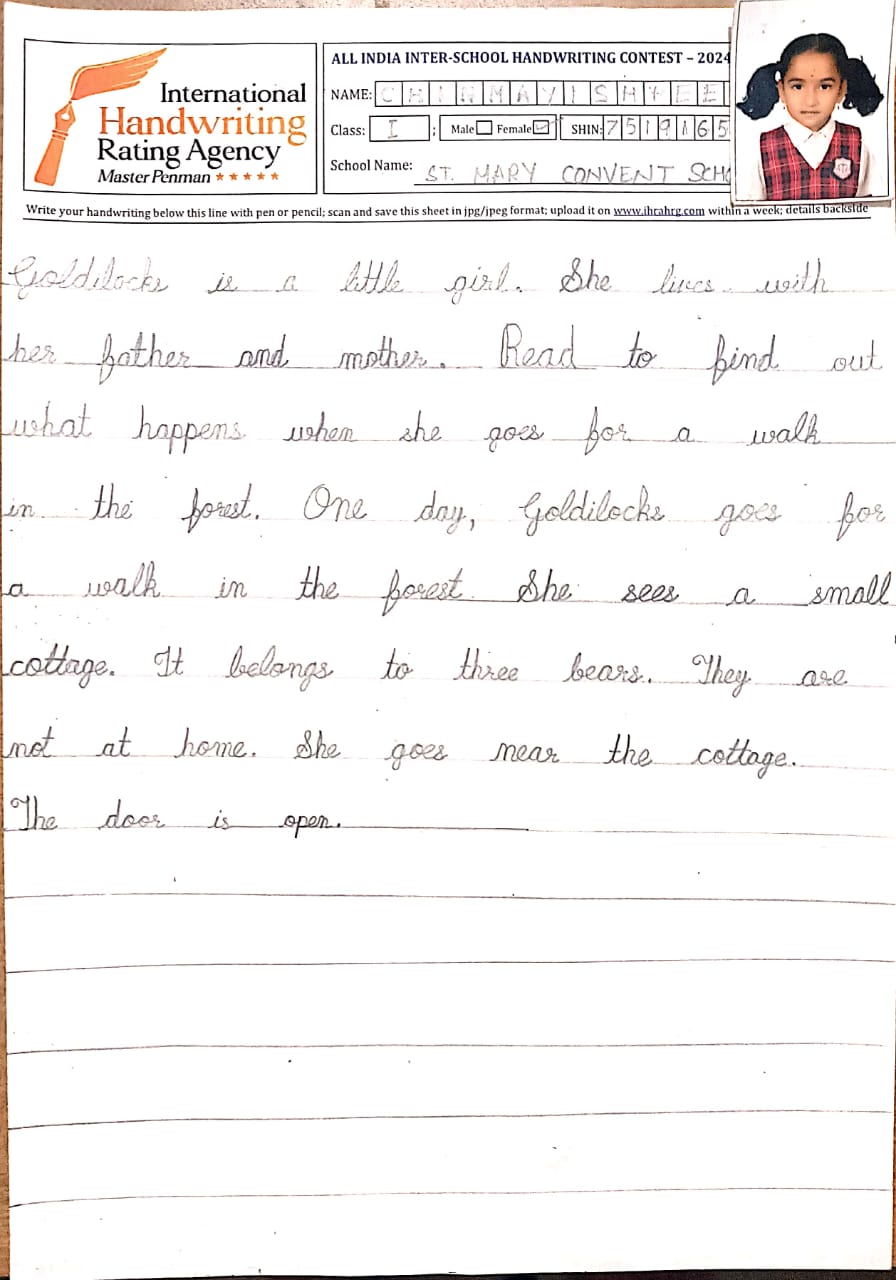 ALL INDIA INTER-SCHOOL HANDWRITING CONTEST – 2024
International
Handwriting
Rating Agency
Master Penman ★★★★★
NAME: CHINMAYISHREE
Class: I ; Male Female SHIN: 7519165
School Name: ST. MARY CONVENT SCHO
Write your handwriting below this line with pen or pencil; scan and save this sheet in jpg/jpeg format; upload it on www.ihrahrg.com within a week; details backside
Goldilocks is a little girl. She lives with
her father and mother. Read to find out
what happens when she goes for a walk
in the forest. One day, Goldilocks goes for
a walk in the forest. She sees a small
cottage. It belongs to three bears. They are
not at home. She goes near the cottage.
The door is open.